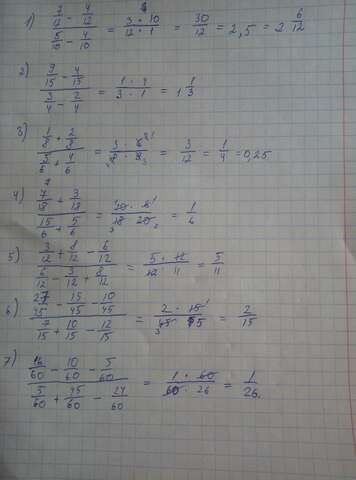 1) (7/12 - 4/12) / (5/10 - 4/10) = (3 · 10) / (12 · 1) = 30/12 = 2,5 = 2 6/12
2) (9/15 - 4/15) / (3/4 - 2/4) = = 1 1/3
3) (1/8 + 2/8) / (+ 4/6) = = 3/12 = 1/4 = 0,25
4) (7/18 + 3/18) / (15/6 + 5/6) = = 1/6
5) (3/12 + 8/12 - 6/12) / (6/12 - 3/12 + 8/12) = (5 · 12) / (12 · 11) = 5/11
6) (27/45 - 15/45 - 10/45) / (7/15 + 10/15 - 12/15) = = 2/15
7) (16/60 - 10/60 - 5/60) / (5/60 + 45/60 - 24/60) = (1 · 60) / (60 · 26) = 1/26